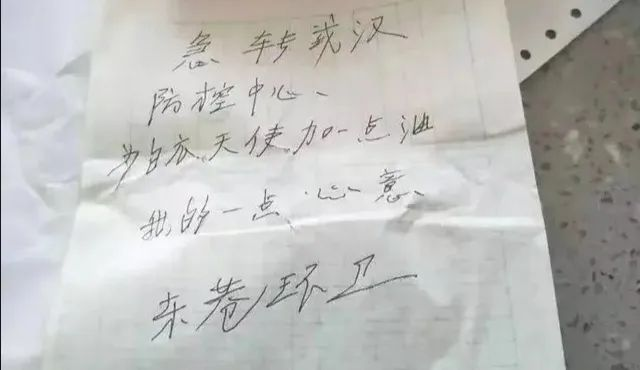 急转武汉
防控中心、
为白衣天使加一点油
我的一点心意、
东巷环卫